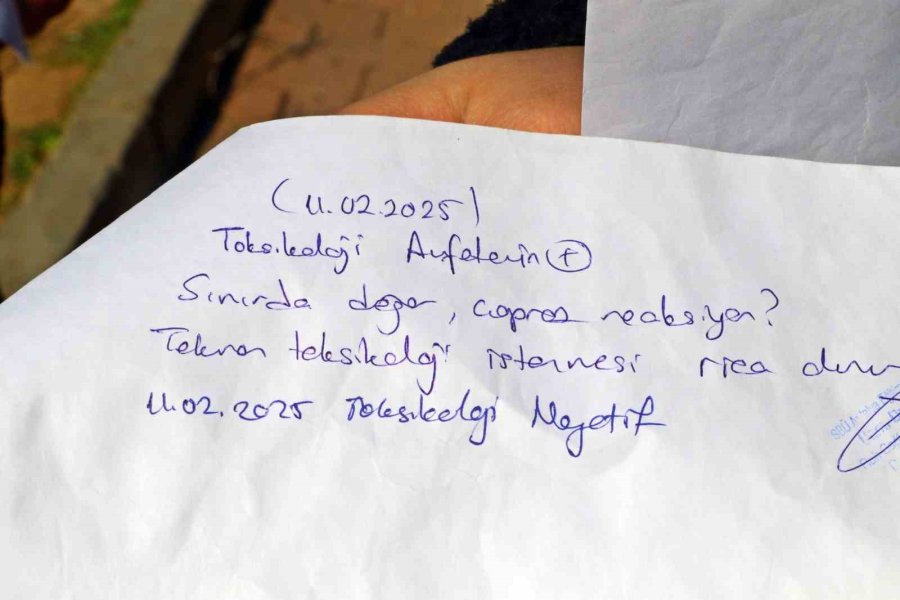 (11.02.2025)
Toksikoloji Amfetamin (+)
Sınırda değer, çapraz reaksiyon?
Tekrar toksikoloji istenmesi rica olunur
11.02.2025 Toksikoloji Negatif